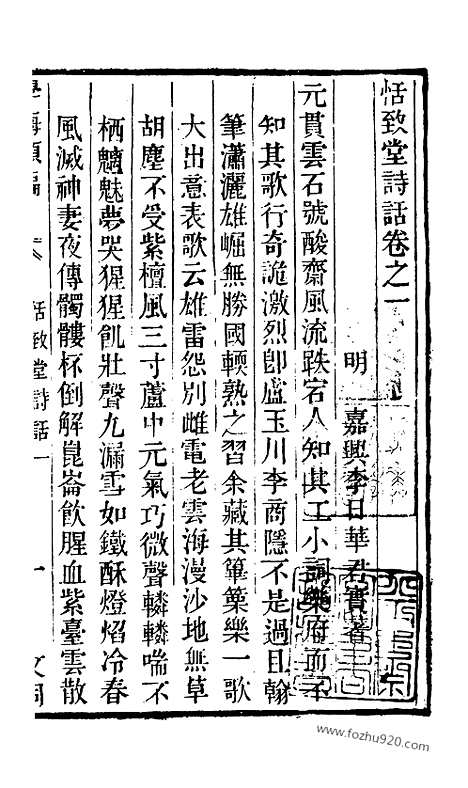 恬致堂詩話卷之一
明　嘉興李日華君實著
元貫雲石號酸齋風流跌宕人知其工小詞樂府而不
知其歌行奇詭激烈卽盧玉川李商隱不是過且翰
筆瀟灑雄崛無勝國輭熟之習余藏其篳篥樂一歌
大出意表歌云雄雷怨別雌電老雲海漫沙地無草
胡塵不受紫檀風三寸蘆中元氣巧微聲轔轔喘不
栖魑魅夢哭猩猩飢壯聲九漏雪如鐵酥燈焰冷春
風滅神妻夜傳髑髏杯倒解崑崙飲腥血紫臺雲散
學海類編
恬致堂詩話一
一
www.fozhu920.com